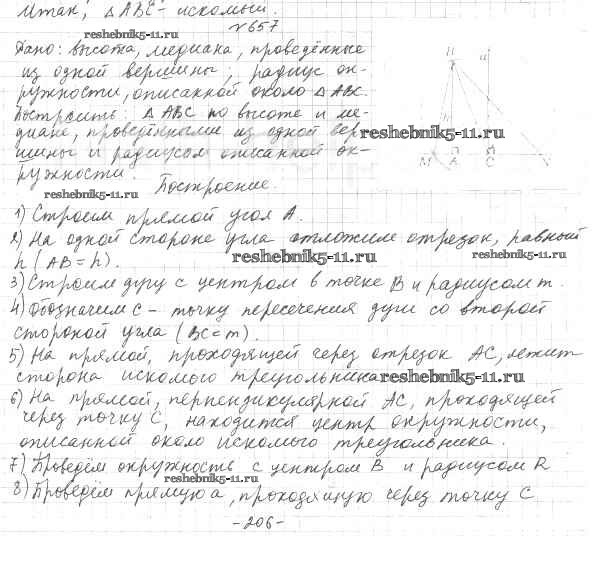 Итак, △ABC - искомый.
reshebnik5-11.ru
№657
Дано: высота, медиана, проведённые
из одной вершины; радиус ок-
ружности, описанной около △ABC.
Построить: △ABC по высоте и ме-
диане, проведёнными из одной вер-
reshebnik5-11.ru
шины и радиусом описанной ок-
ружности.
M A C
reshebnik5-11.ru
Построение.
1) Строим прямой угол A.
2) На одной стороне угла отложим отрезок, равный
h (AB=h).
reshebnik5-11.ru
3) Строим дугу с центром в точке B и радиусом m.
4) Обозначим C - точку пересечения дуги со второй
стороной угла (BC=m).
5) На прямой, проходящей через отрезок AC, лежит
сторона искомого треугольника
reshebnik5-11.ru
6) На прямой, перпендикулярной AC, проходящей
через точку C, находится центр окружности,
описанной около искомого треугольника.
7) Проведём окружность с центром B и радиусом R
reshebnik5-11.ru
8) Проведём прямую a, проходящую через точку C
-206-